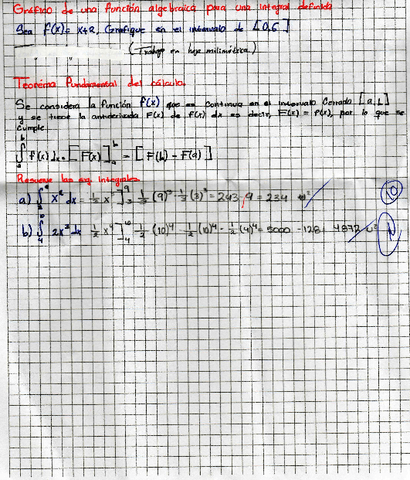 Gráfico de una función algebraica para una integral definida
Sea f(x)= x+2, Grafique en el intervalo de [0,6]
(Trabajo en hoja milimétrica.)
Teorema Fundamental del cálculo.
Se considera la función f(x) que es continua en el intervalo Cerrado [a,b]
y se tiene la antiderivada F(x) de f(x) dx es decir, F(x) = f(x), por lo que se
cumple
∫ᵇₐ f(x) dx = [F(x)]ᵇₐ = [F(b) - F(a)]
Resuelve las integrales
a) x² dx = 1/3 x³ ]⁹₃ 1/3 (9)³ - 1/3 (3)³ = 243 - 9 = 234 u²
b) 2x³ dx 1/2 x⁴ ]¹⁰₄ 1/2 (10)⁴ 1/2 (10)⁴ - 1/2 (4)⁴ = 5000 - 128 = 4872 u²